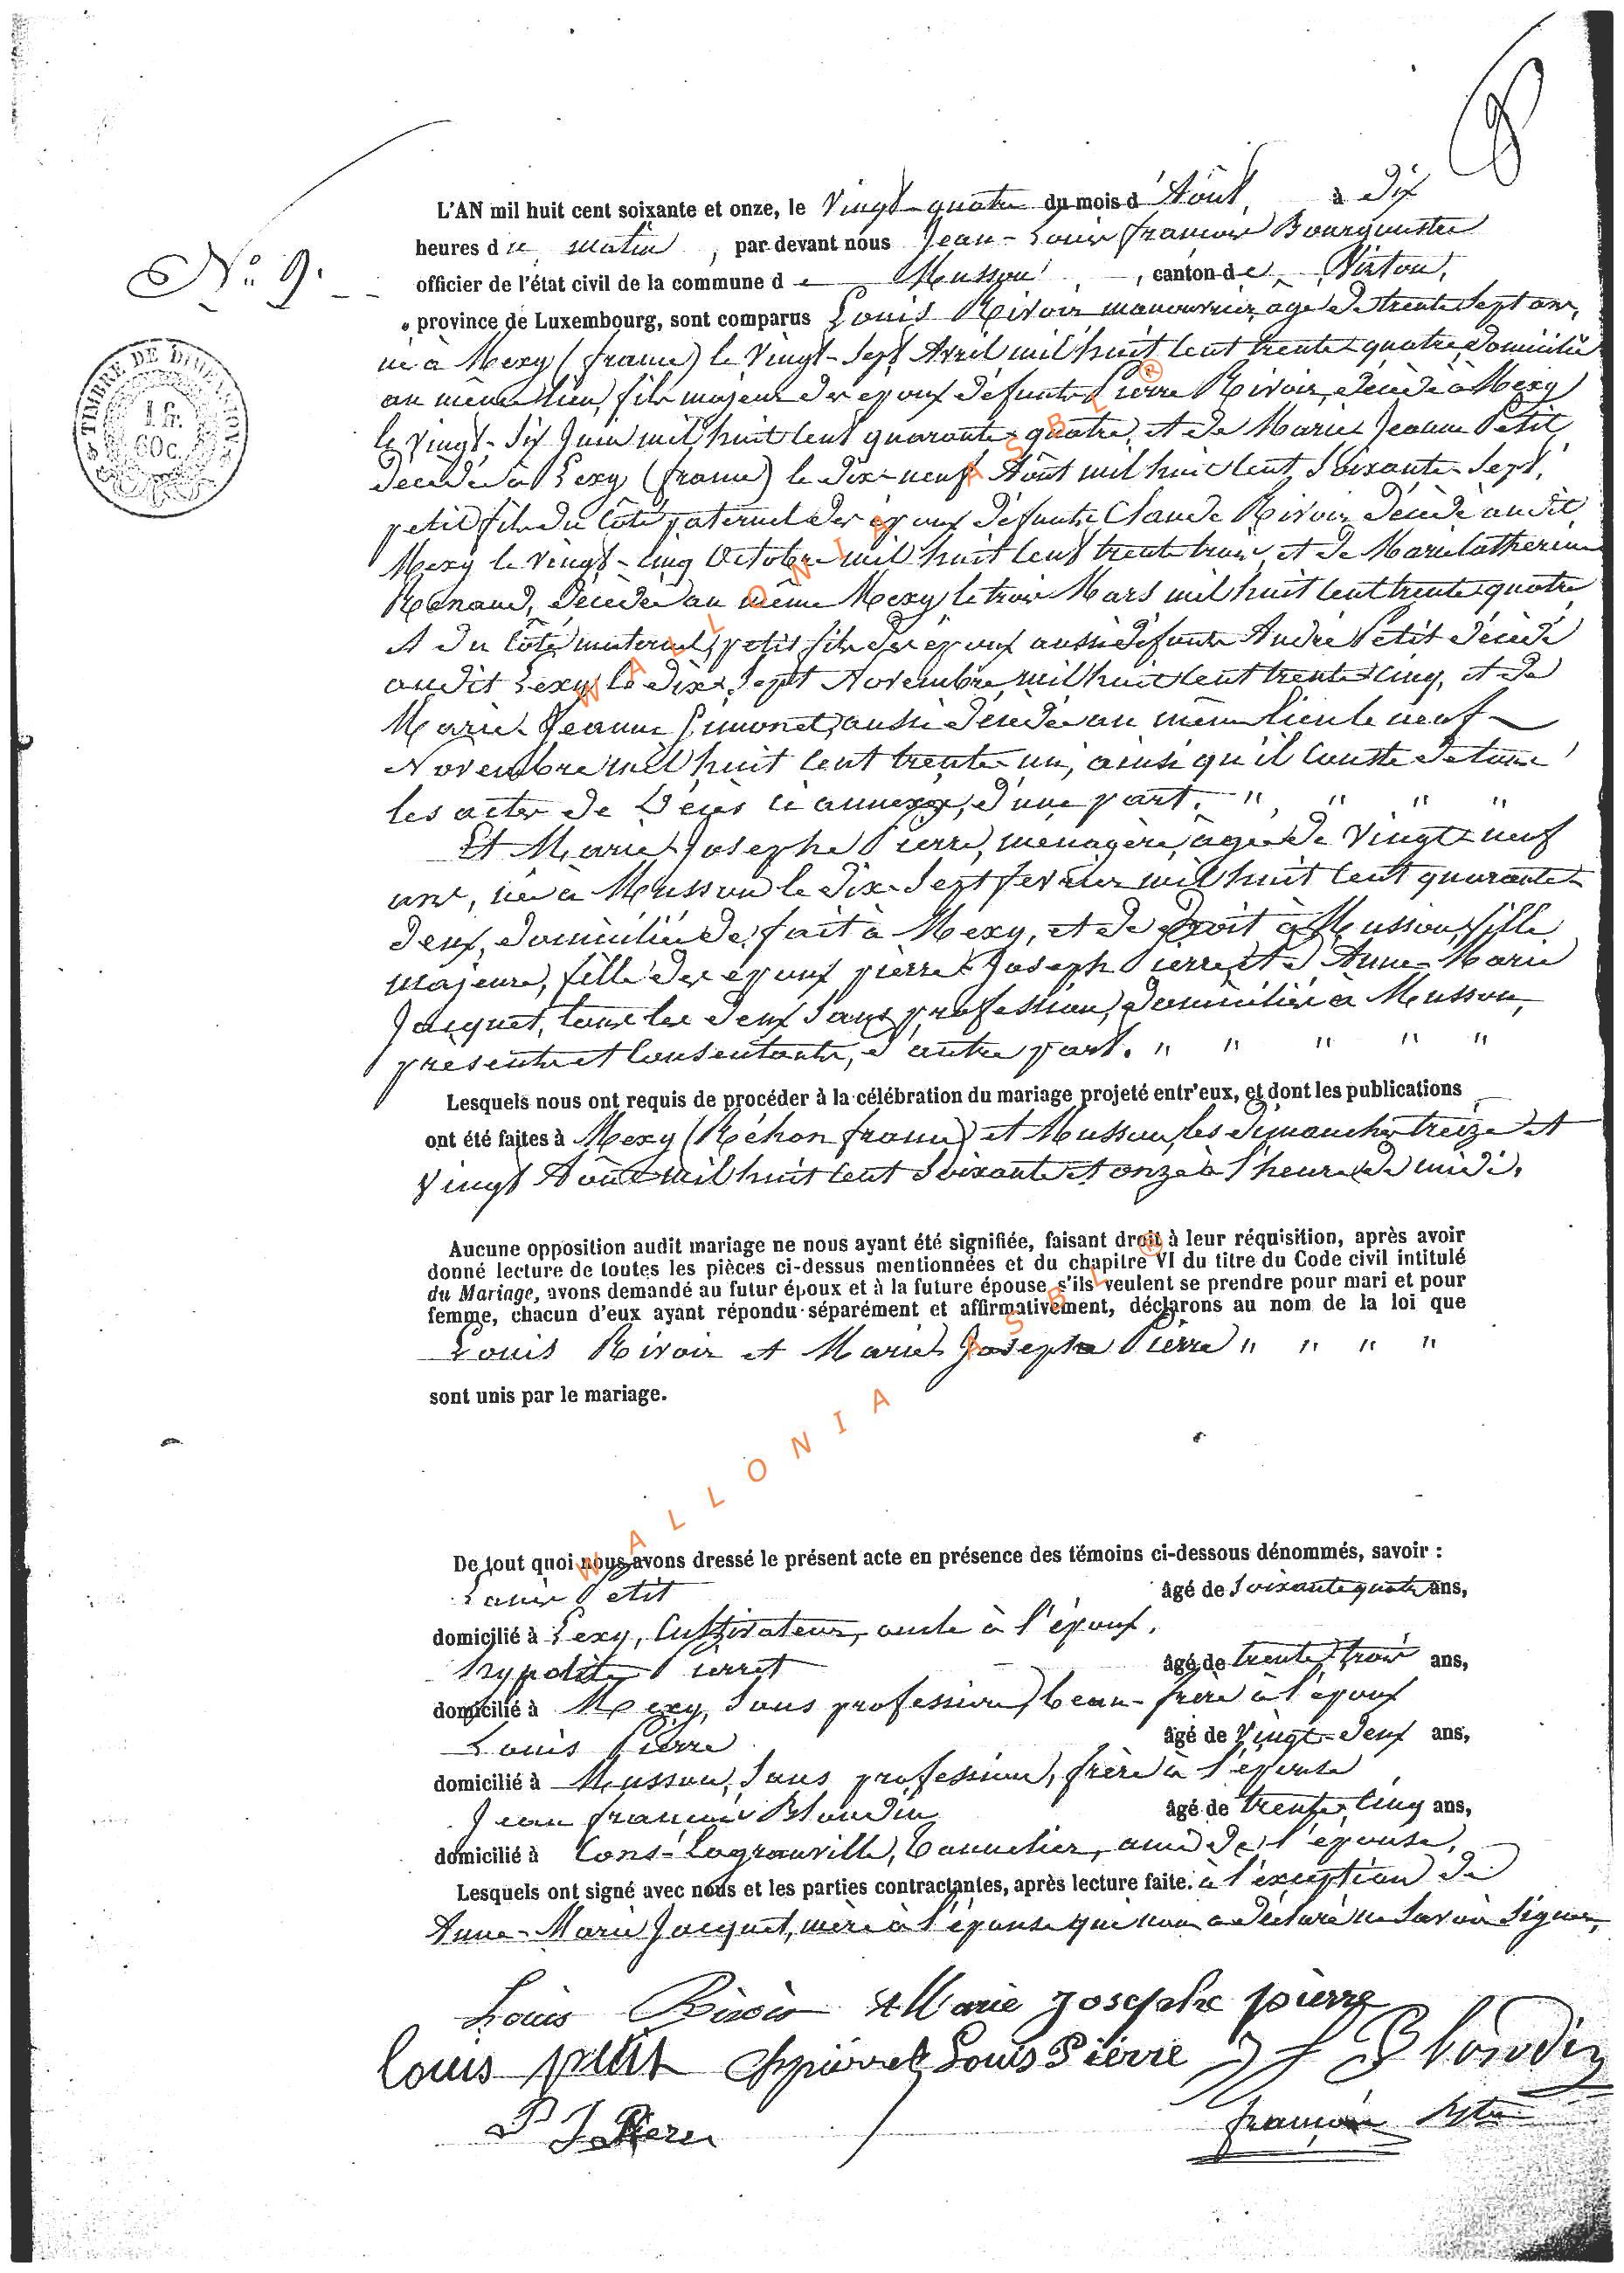 N° 9.
TIMBRE DE DIMENSION
1 fr.
60 c.
L'AN mil huit cent soixante et onze, le Vingt-quatre du mois d'Août, à dix
heures du matin, par devant nous Jean-Louis françois Bourgmestre
officier de l'état civil de la commune de Musson, canton de Virton,
province de Luxembourg, sont comparus Louis Rivoir manouvrier, âgé de trente sept ans,
né à Mexy (france) le Vingt-sept Avril mil huit cent trente quatre, domicilié
au même lieu, fils majeur des époux défunts Pierre Rivoir, décédé à Mexy
le vingt-six Juin mil huit cent quarante quatre, et de Marie Jeanne Petit
décédée à Lexy (france) le dix-neuf Août mil huit cent soixante sept,
petit fils du côté paternel des époux défunts Claude Rivoir décédé audit
Mexy le vingt-cinq Octobre mil huit cent trente trois, et de Marie Catherine
Renaud, décédée au même Mexy le trois Mars mil huit cent trente quatre
et du côté maternel, petit fils des époux aussi défunts André Petit décédé
audit Lexy le dix-sept Novembre mil huit cent trente cinq, et de
Marie Jeanne Simonet, aussi décédée au même lieu le neuf
Novembre mil huit cent trente un, ainsi qu'il conste de tous
les actes de décès ci annexés, d'une part. " " " "
Et Marie Josephe Pierre, ménagère, âgée de vingt neuf
ans, née à Musson le dix-sept février mil huit cent quarante
deux, domiciliée de fait à Mexy, et de droit à Musson, fille
majeure, fille des époux pierre Joseph Pierre et d'Anne-Marie
Jacquet, tous les deux sans profession, domiciliés à Musson,
présents et consentants, d'autre part. " " " " "
Lesquels nous ont requis de procéder à la célébration du mariage projeté entr'eux, et dont les publications
ont été faites à Mexy (Réhon france) et Musson, les dimanches treize et
vingt Août mil huit cent soixante et onze à l'heure de midi.
Aucune opposition audit mariage ne nous ayant été signifiée, faisant droit à leur réquisition, après avoir
donné lecture de toutes les pièces ci-dessus mentionnées et du chapitre VI du titre du Code civil intitulé
du Mariage, avons demandé au futur époux et à la future épouse s'ils veulent se prendre pour mari et pour
femme, chacun d'eux ayant répondu séparément et affirmativement, déclarons au nom de la loi que
Louis Rivoir et Marie Josephe Pierre " " " "
sont unis par le mariage.
De tout quoi nous avons dressé le présent acte en présence des témoins ci-dessous dénommés, savoir :
Louis Petit âgé de soixante quatre ans,
domicilié à Lexy, Cultivateur, oncle à l'époux,
hypolite Pierret âgé de trente trois ans,
domicilié à Mexy, sans profession, beau-frère à l'époux
Louis Pierre âgé de Vingt-deux ans,
domicilié à Musson, sans profession, frère à l'épouse
Jean françois Blondin âgé de trente cinq ans,
domicilié à Cons-Lagranville, tonnelier, ami de l'épouse,
Lesquels ont signé avec nous et les parties contractantes, après lecture faite. à l'exception de
Anne-Marie Jacquet, mère à l'épouse qui nous a déclaré ne savoir signer,
Louis Rivoir Marie josephe pierre
louis petit hpierret Louis Pierre J f Blondin
P J Piere françois
WALLONIA ASBL ®
WALLONIA ASBL ®